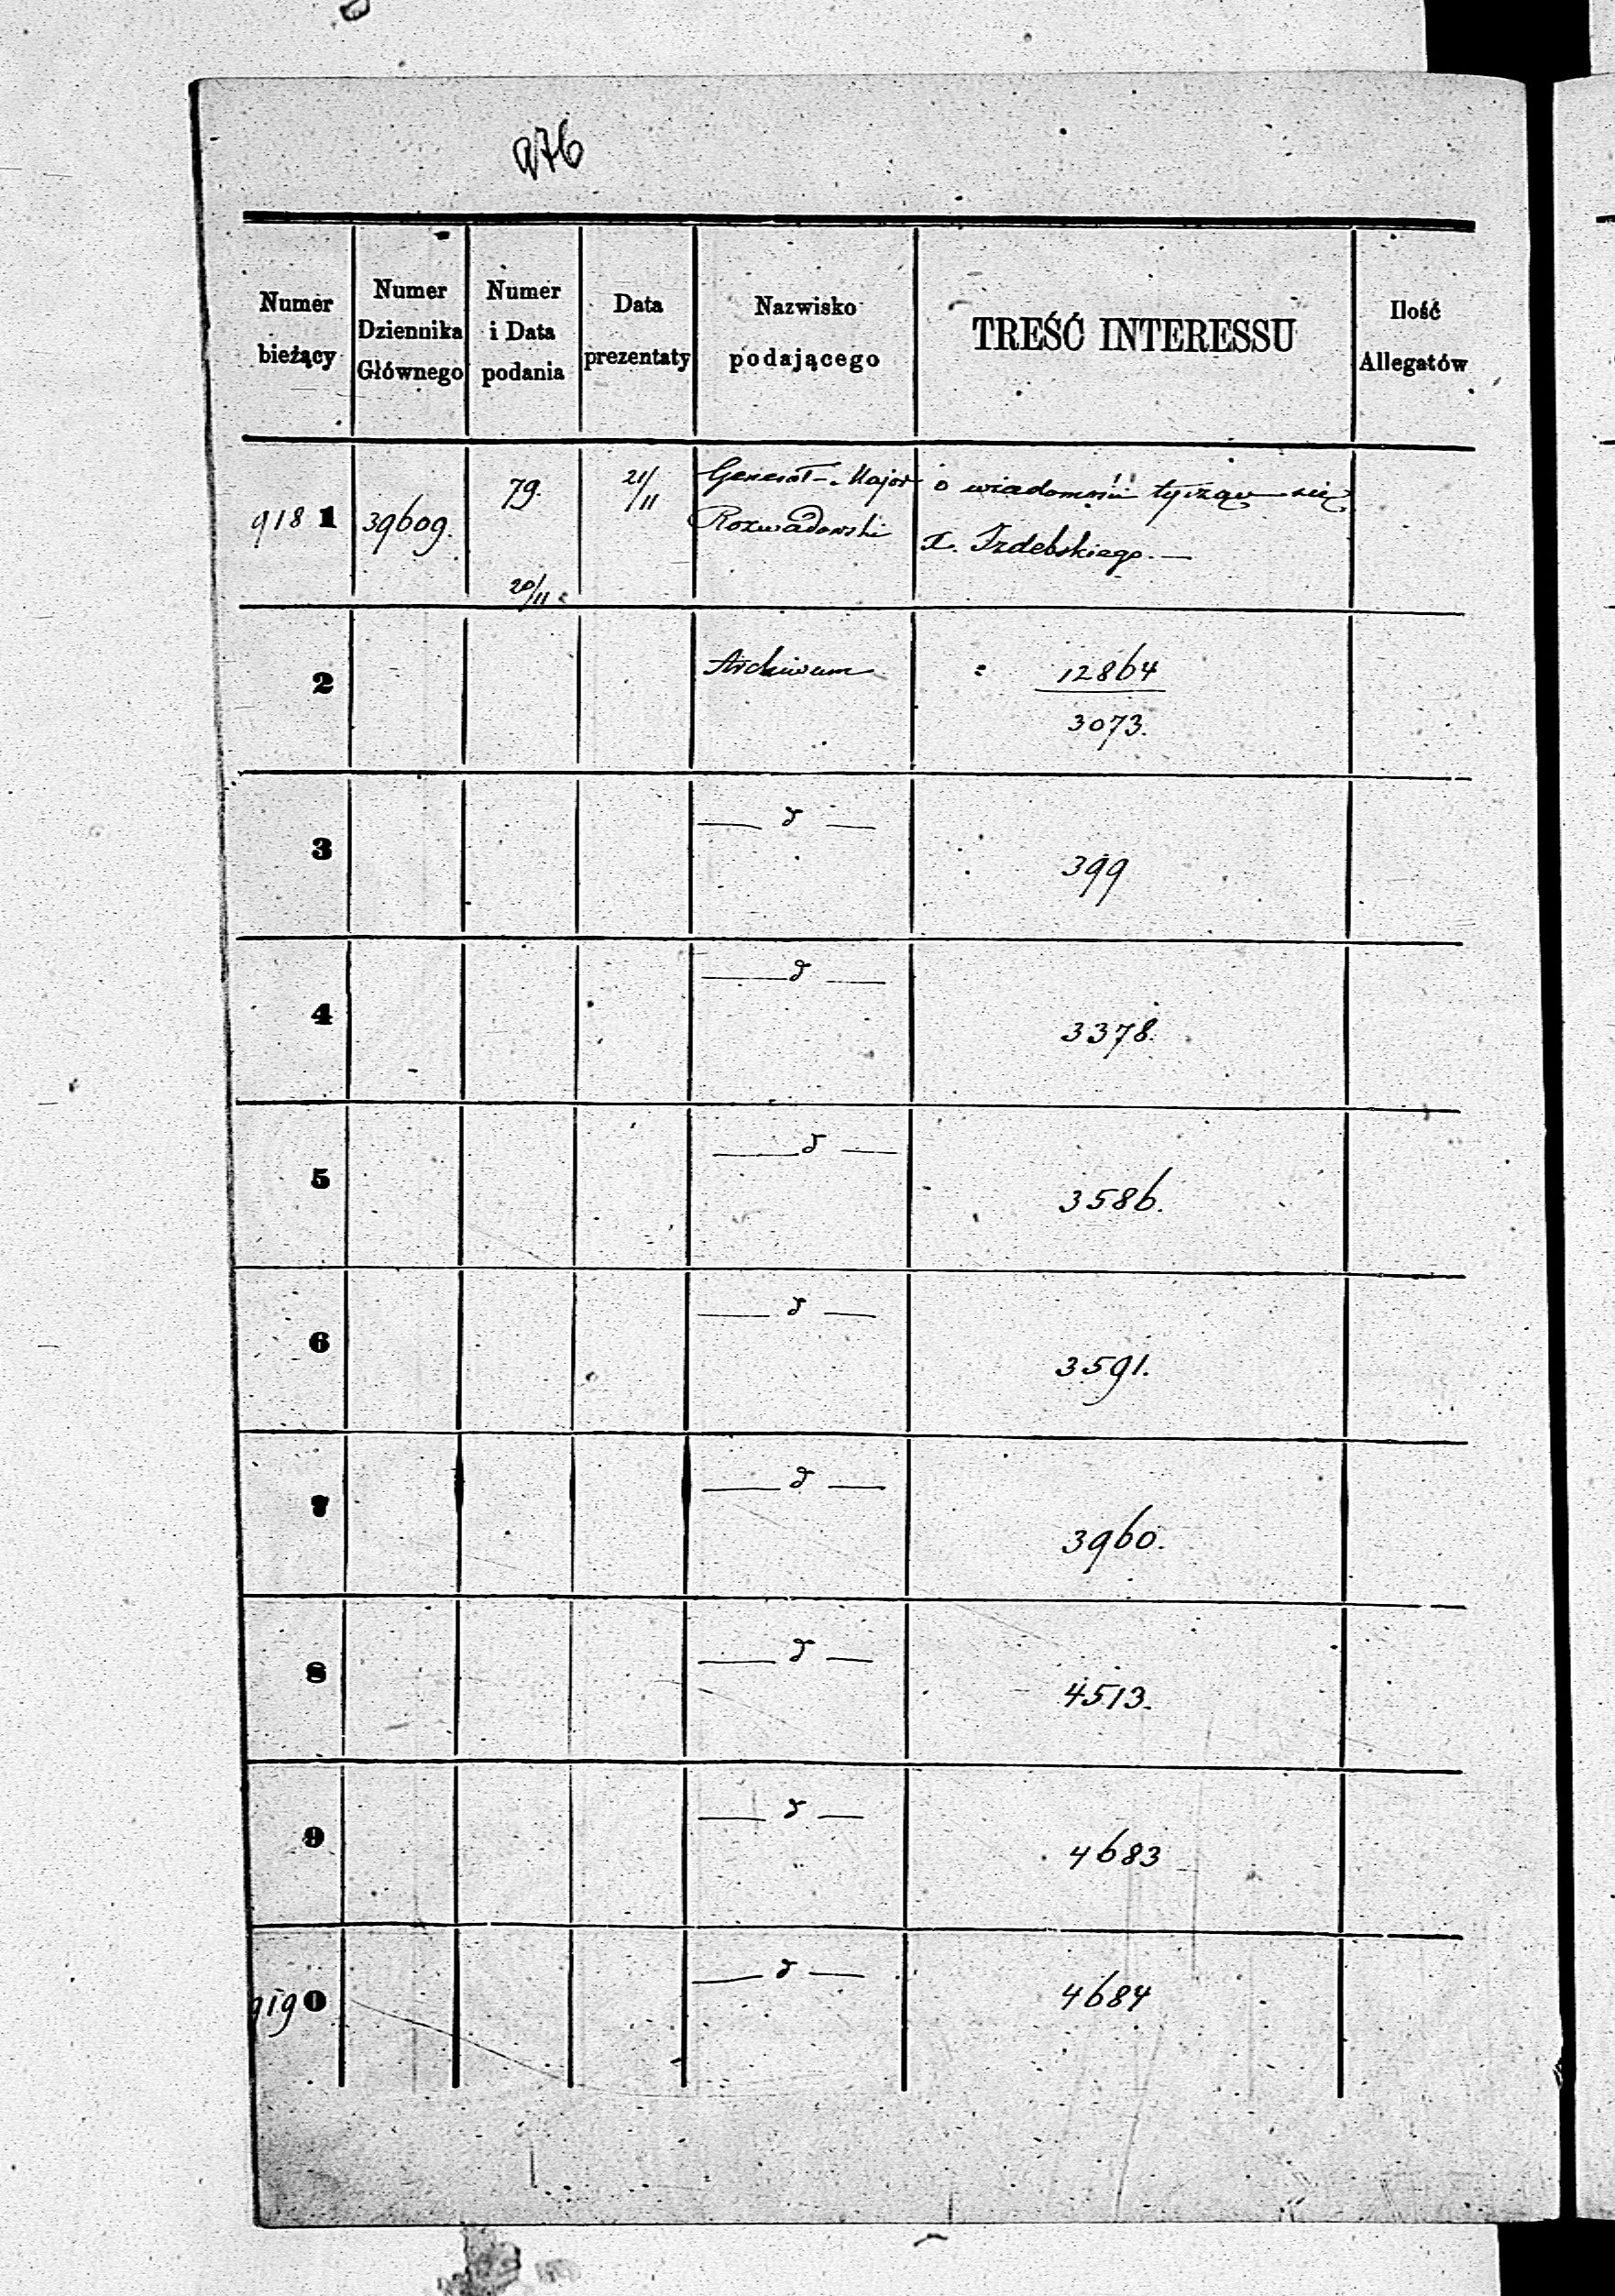 976
Numer bieżący
Numer Dziennika Głównego
Numer i Data podania
Data prezentaty
Nazwisko podającego
TREŚĆ INTERESSU
Ilość Allegatów
9181 39609. 79. 21/11 Generał-Major o wiadomości tyczące się
20/11 Rozwadowski X. Izdebskiego.—
2 Archiwum 12864
3073.
3 — d — 399
4 — d — 3378.
5 — d — 3586.
6 — d — 3591.
7 — d — 3960.
8 — d — 4513.
9 — d — 4683
9190 — d — 4684